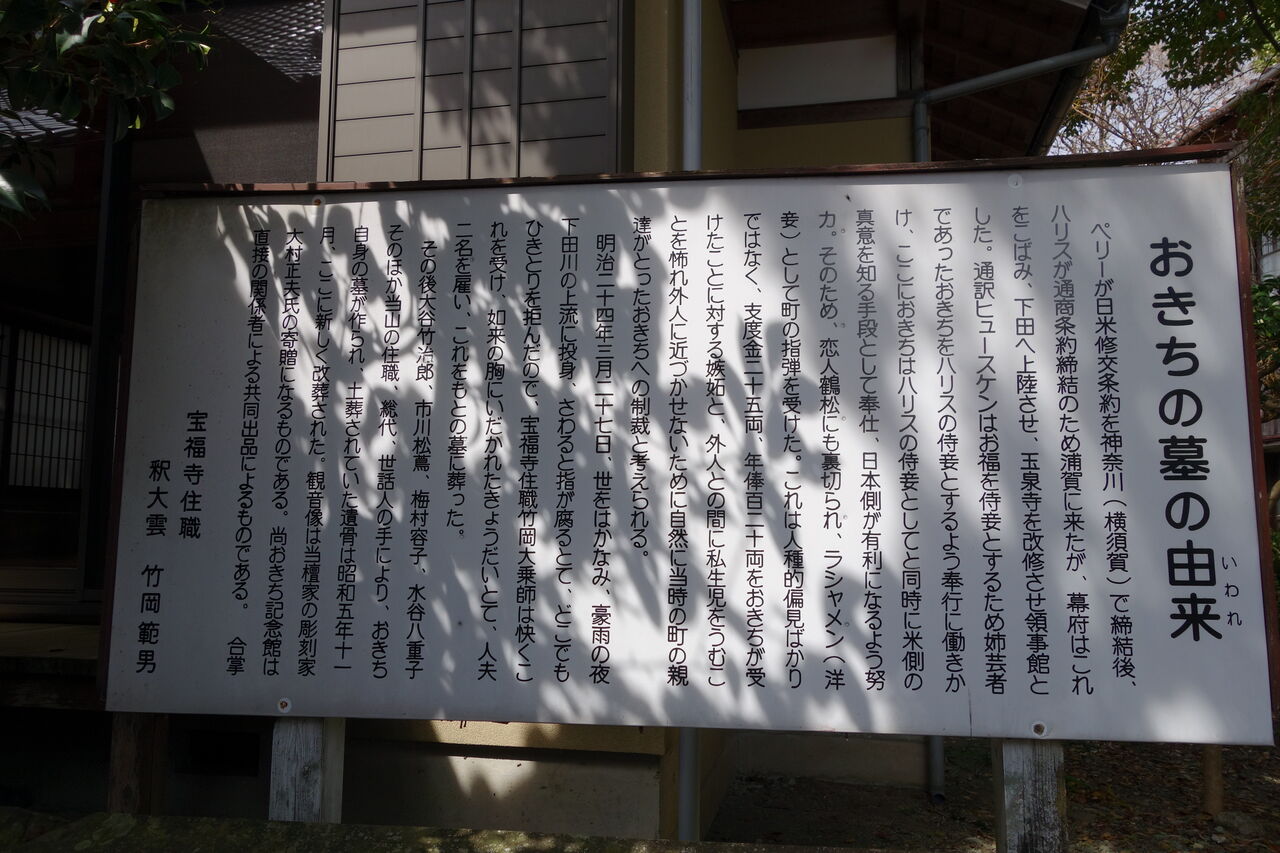 おきちの墓の由来
いわれ
ペリーが日米修交条約を神奈川（横須賀）で締結後、
ハリスが通商条約締結のため浦賀に来たが、幕府はこれ
をこばみ、下田へ上陸させ、玉泉寺を改修させ領事館と
した。通訳ヒュースケンはお福を侍妾とするため姉芸者
であったおきちをハリスの侍妾とするよう奉行に働きか
け、ここにおきちはハリスの侍妾としてと同時に米側の
真意を知る手段として奉仕、日本側が有利になるよう努
力。そのため、恋人鶴松にも裏切られ、ラシャメン（洋
妾）として町の指弾を受けた。これは人種的偏見ばかり
ではなく、支度金二十五両、年俸百二十両をおきちが受
けたことに対する嫉妬と、外人との間に私生児をうむこ
とを怖れ外人に近づかせないために自然に当時の町の親
達がとったおきちへの制裁と考えられる。
明治二十四年三月二十七日、世をはかなみ、豪雨の夜
下田川の上流に投身、さわると指が腐るとて、どこでも
ひきとりを拒んだので、宝福寺住職竹岡大乗師は快くこ
れを受け、如来の胸にいだかれたきょうだいとて、人夫
二名を雇い、これをもとの墓に葬った。
その後大谷竹治郎、市川松蔦、梅村容子、水谷八重子
そのほか当山の住職、総代、世話人の手により、おきち
自身の墓が作られ、土葬されていた遺骨は昭和五年十一
月、ここに新しく改葬された。観音像は当檀家の彫刻家
大村正夫氏の寄贈になるものである。尚おきち記念館は
直接の関係者による共同出品によるものである。　合掌
宝福寺住職
釈大雲　竹岡範男